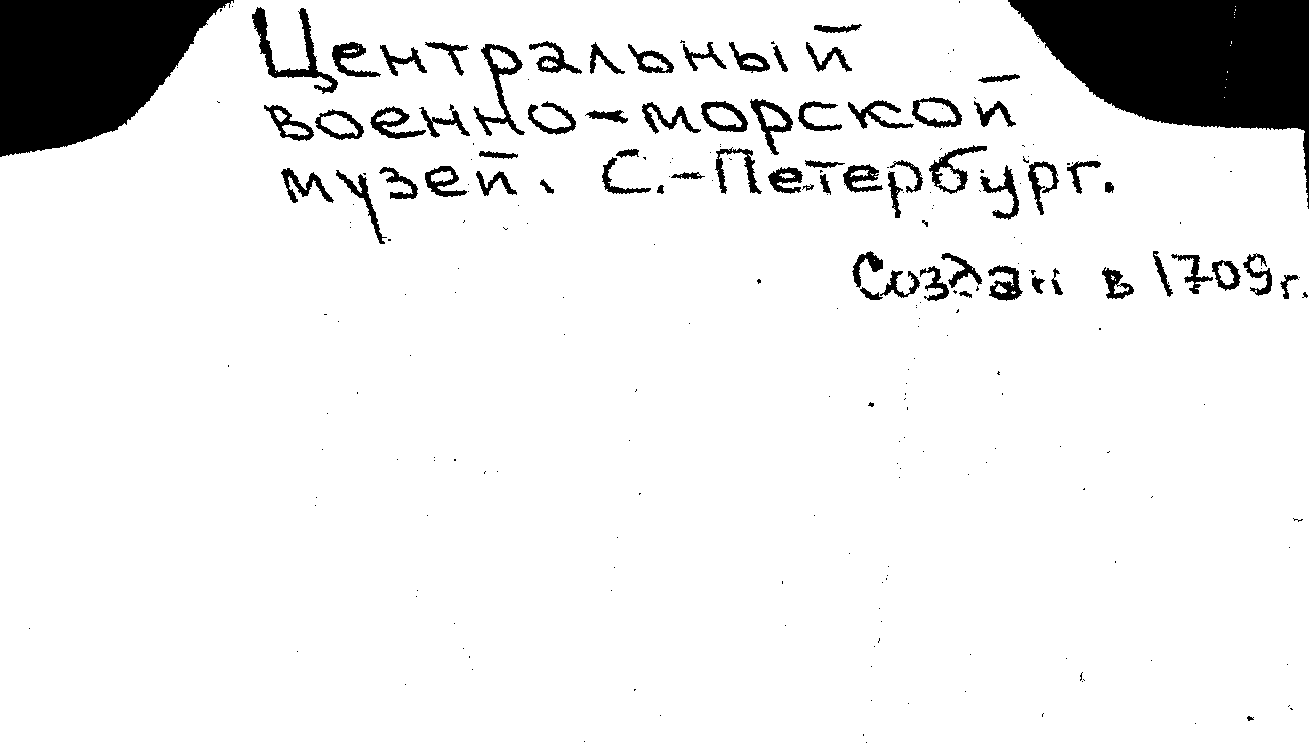 Центральный
военно-морской
музей. С.-Петербург.
Создан в 1709г.